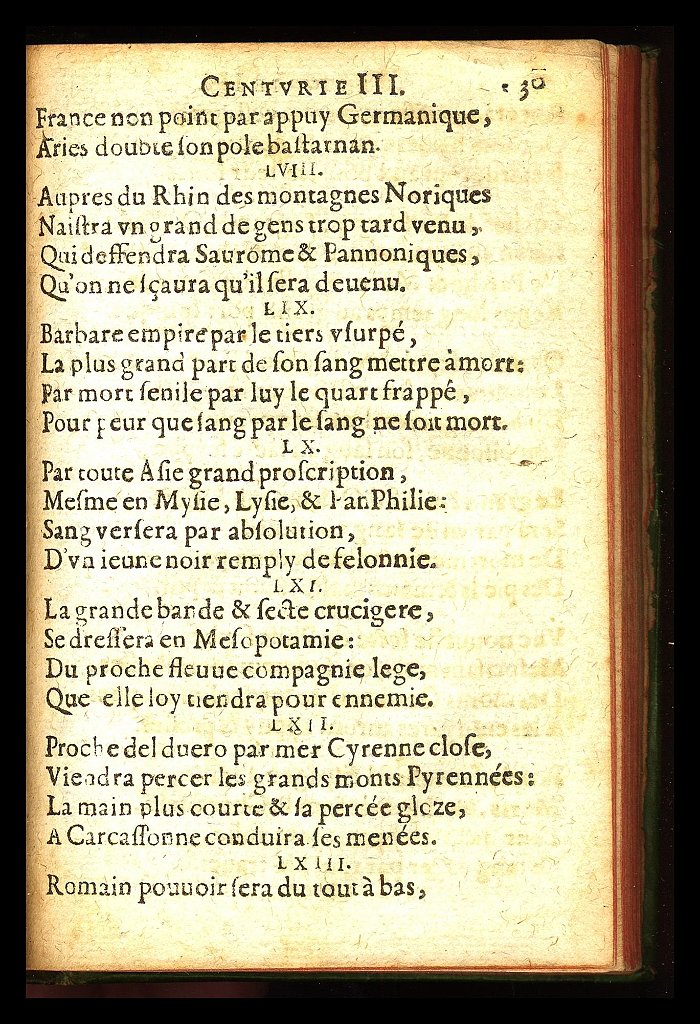 CENTVRIE III. 30
France non point par appuy Germanique,
Aries doubte ſon pole baſtarnan.
LVIII.
Aupres du Rhin des montagnes Noriques
Naiſtra vn grand de gens trop tard venu,
Qui deffendra Sauróme & Pannoniques,
Qu'on ne ſçaura qu'il ſera deuenu.
LIX.
Barbare empire par le tiers vſurpé,
La plus grand part de ſon ſang mettre à mort:
Par mort ſenile par luy le quart frappé,
Pour peur que ſang par le ſang ne ſoit mort.
LX.
Par toute Aſie grand proſcription,
Meſme en Myſie, Lyſie, & PanPhilie:
Sang verſera par abſolution,
D'vn ieune noir remply de felonnie.
LXI.
La grande bande & ſecte crucigere,
Se dreſſera en Meſopotamie:
Du proche fleuue compagnie lege,
Que elle loy tiendra pour ennemie.
LXII.
Proche del duero par mer Cyrenne cloſe,
Viendra percer les grands monts Pyrennées:
La main plus courte & ſa percée gloze,
A Carcaſſonne conduira ſes menées.
LXIII.
Romain pouuoir ſera du tout à bas,